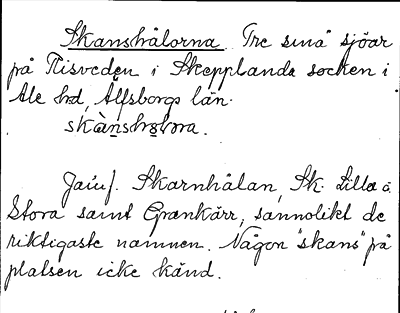 Skanshålorna. Tre små sjöar
på Risveden i Skepplanda socken i
Ale hd, Älfsborgs län.
skànshọlọra.
Jämf. Skarnhålan, Sk. Lilla o.
Stora samt Grankärr, sannolikt de
riktigaste namnen. Någon "skans" på
platsen icke känd.